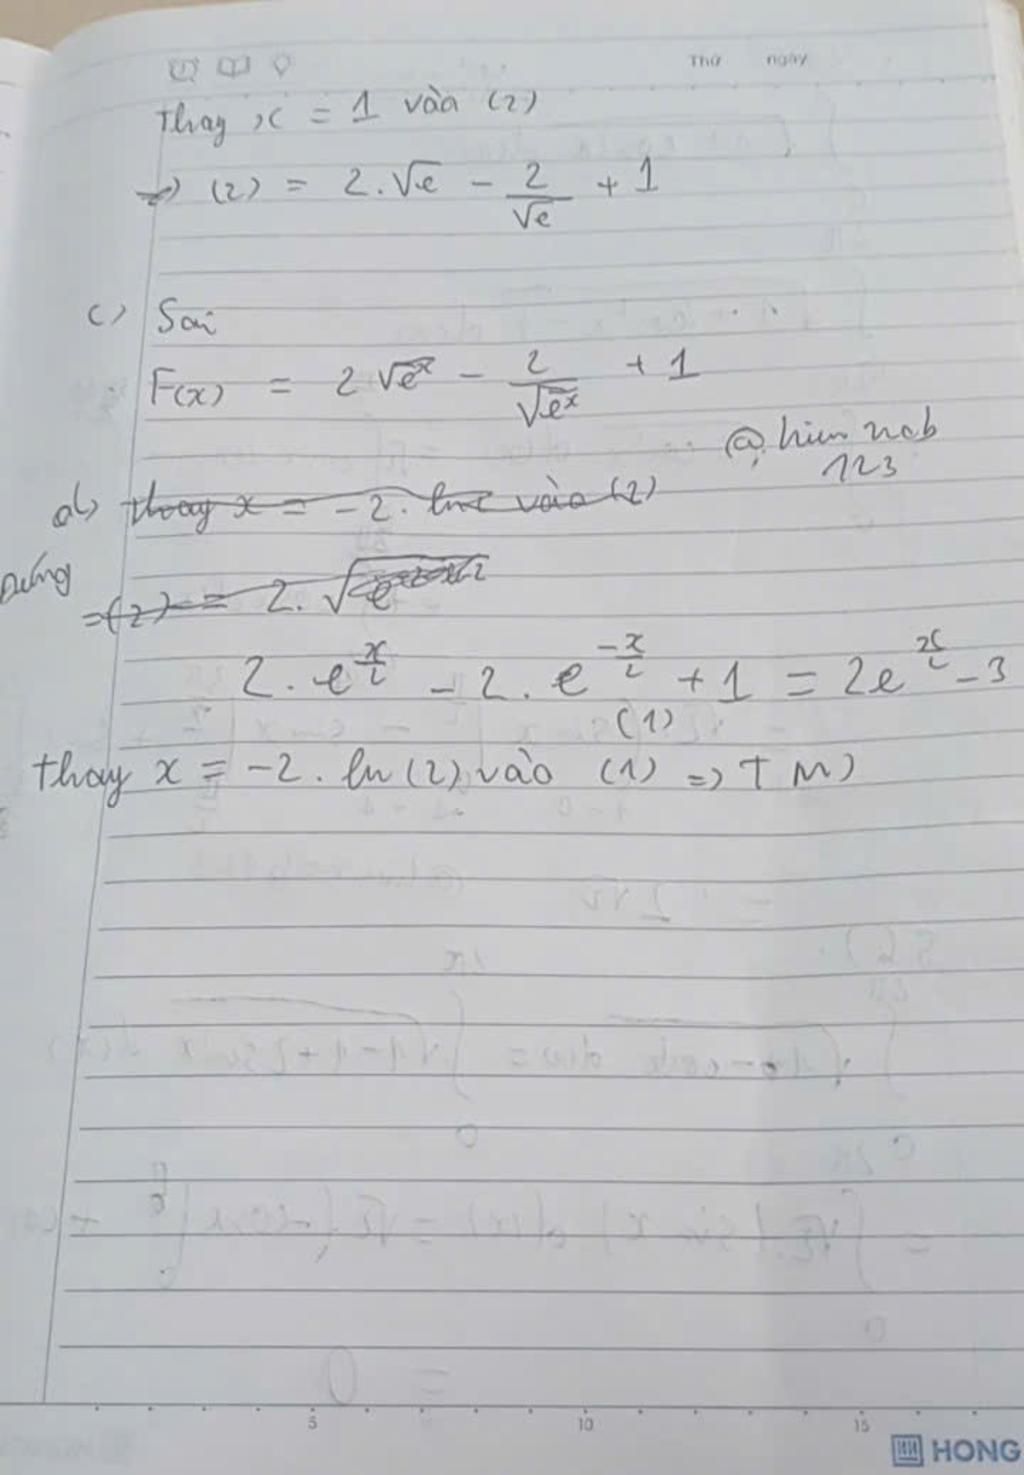 Thứ ngày
Thay x = 1 vào (2)
=> (2) = 2.√e - 2/√e + 1
c) Sai
F(x) = 2√eˣ - 2/√eˣ + 1
@hien ncb
123
d) thay x = -2. ln2 vào (2)
Đúng
=(2) = 2.
2. e^(x/2) - 2. e^(-x/2) + 1 = 2e^(x/2) - 3
(1)
thay x = -2. ln(2) vào (1) => TM)
5 10 15
HONG